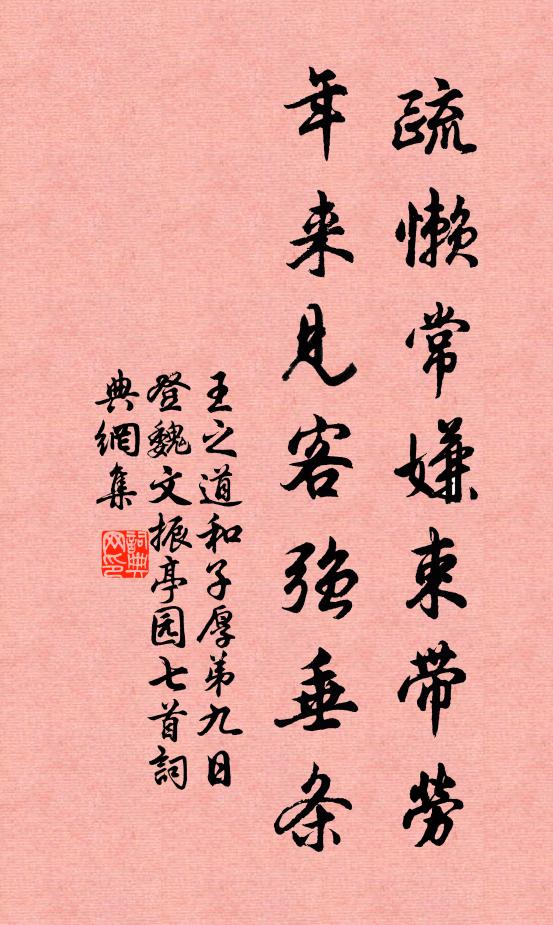 疏懒常嫌束带劳
年来见客强垂条
王之道和子厚弟九日
登魏文振亭园七首詞
典網集
詞典网印